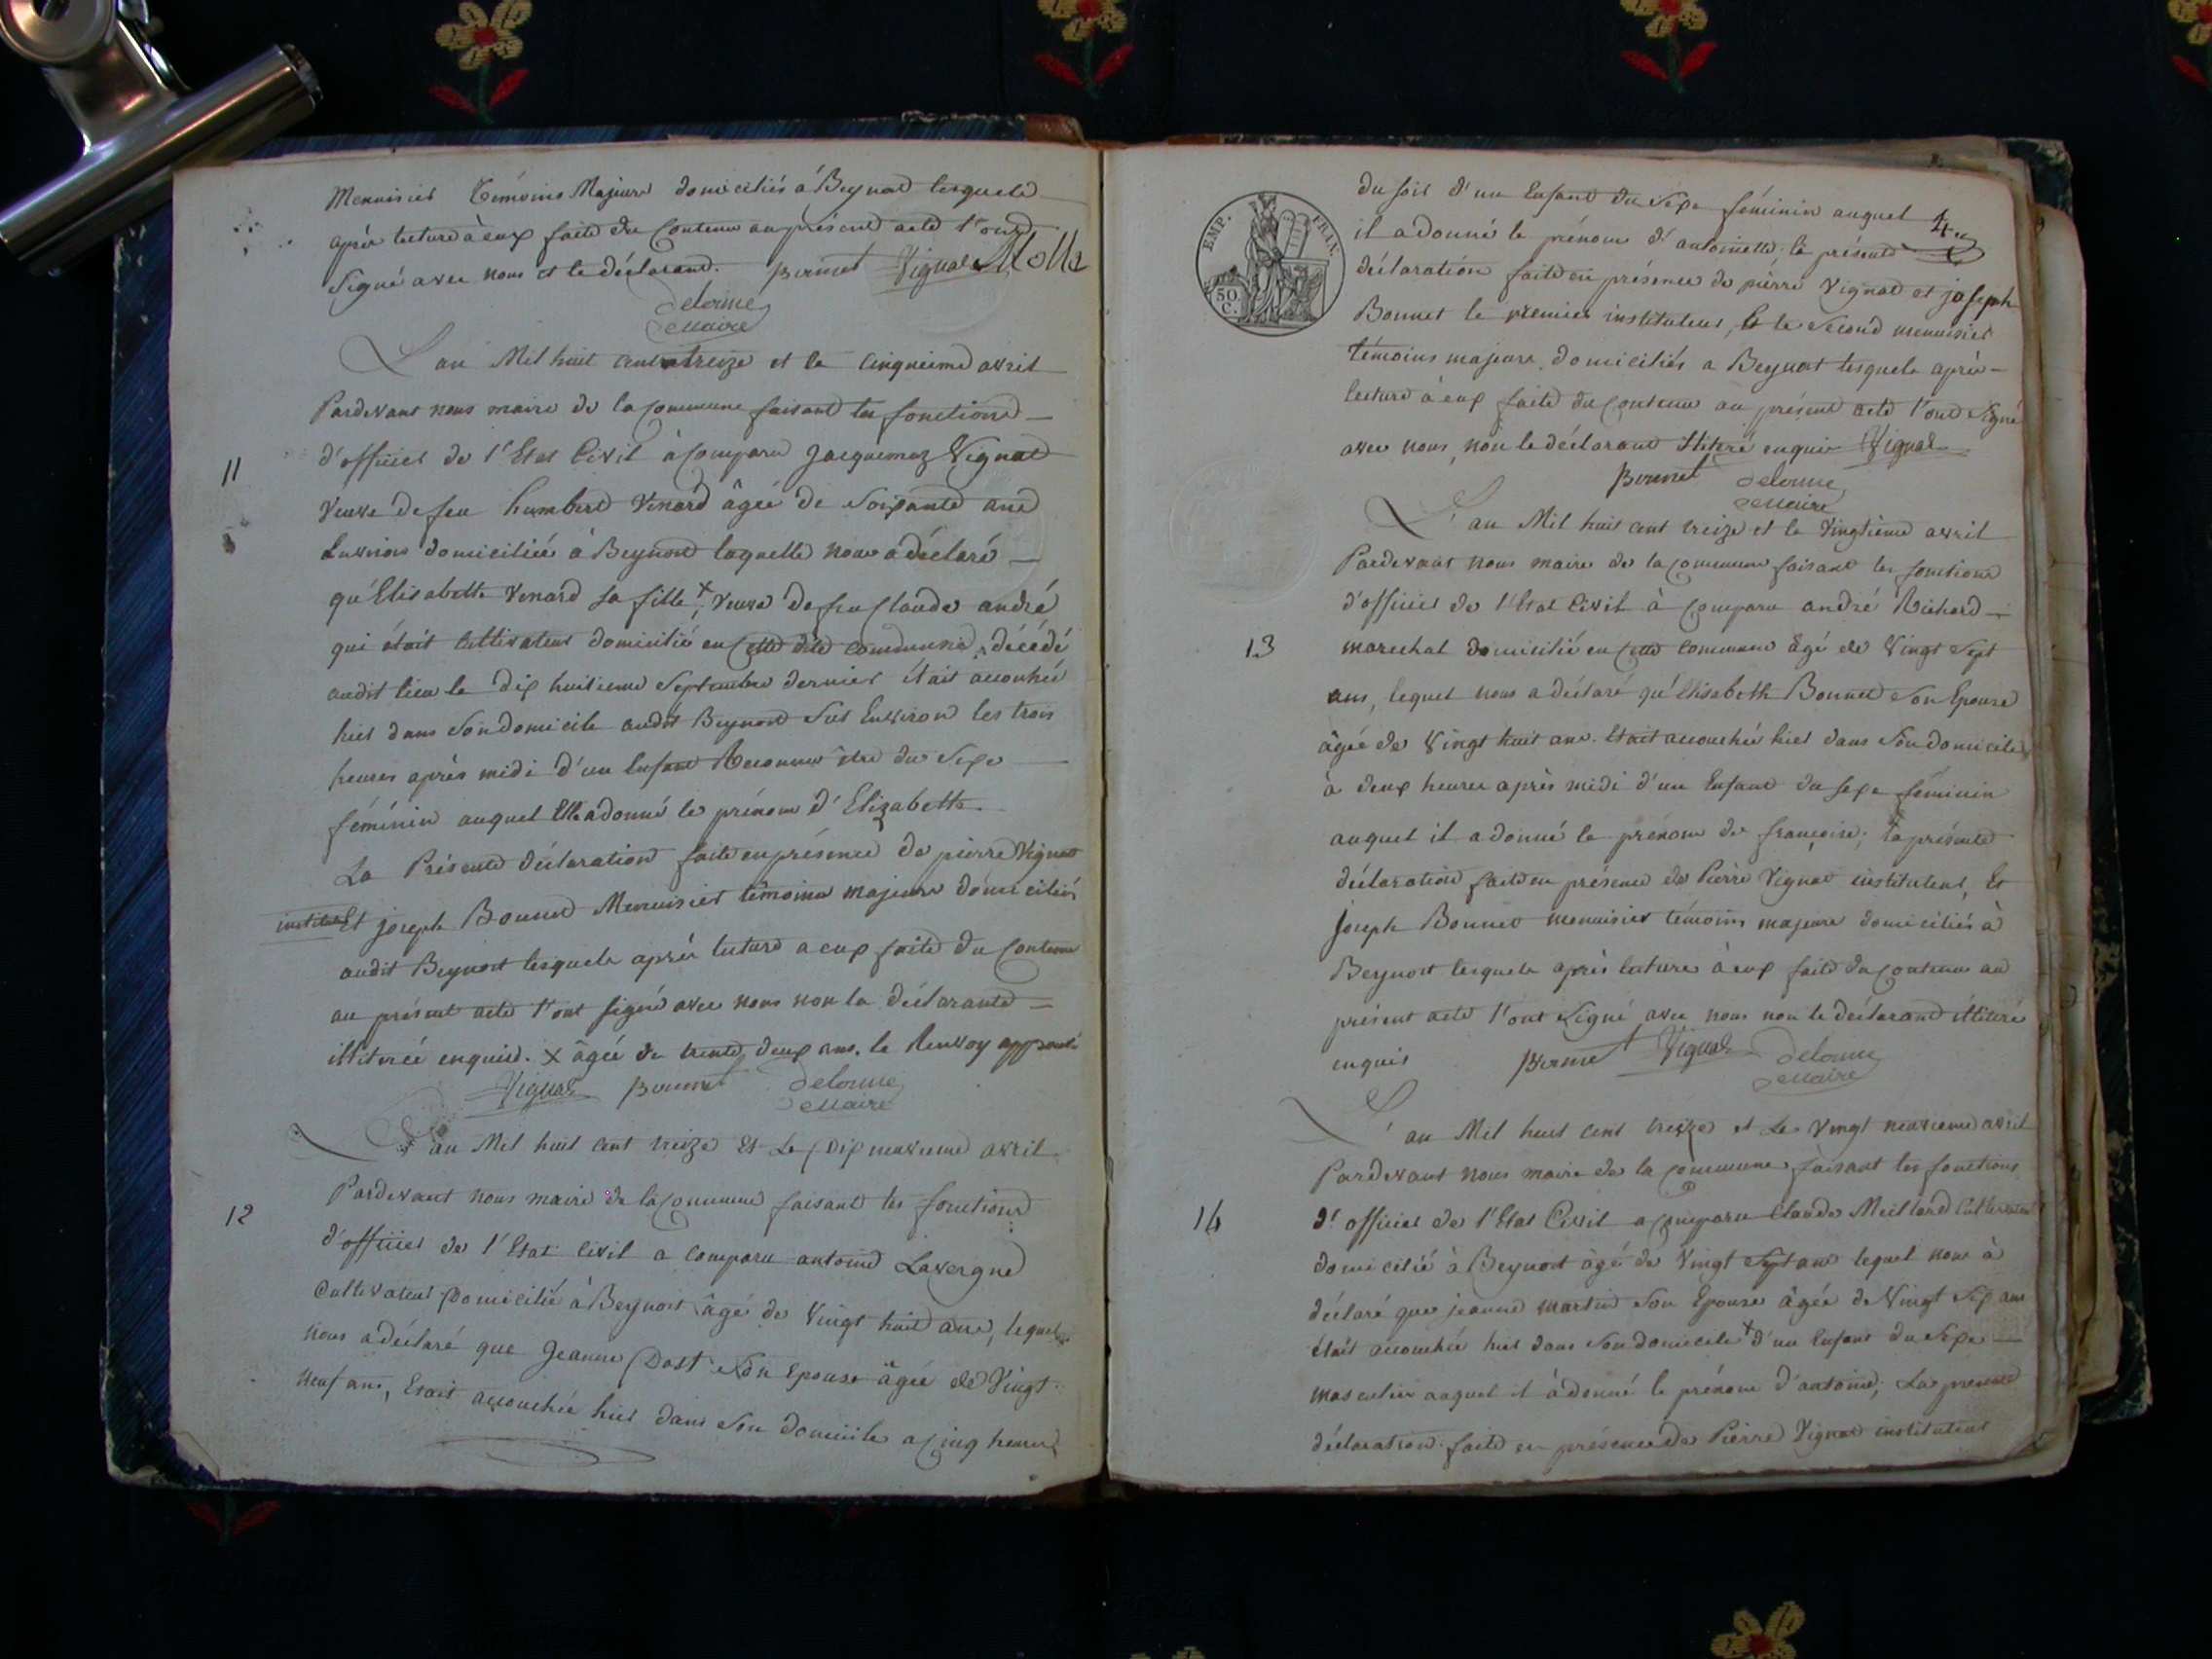 Menuisier Témoins Majeurs domiciliés à Beynost lesquels
après lecture à eux faite du Contenu au présent acte l'ont
Signé avec nous et le déclarant. Bonnet Vignat
Delorme
Maire
L'an Mil huit cent treize et le Cinquieme avril
Pardevant nous maire de la Commune faisant les fonctions
11
d'officier de l'Etat Civil à Comparu Jacquemaz Vignat
Veuve de feu humbert Venard âgée de Soixante ans
Environ domiciliée à Beynost laquelle nous a déclaré
qu'Elisabeth Venard sa fille x, Veuve de feu Claude andré
qui était Cultivateur domicilié en Cette dite Commune, décédé
audit lieu le dix huitieme Septembre dernier était accouchée
hier dans Son domicile audit Beynost Sur Environ les trois
heures après midi d'un Enfant Reconnu être du Sexe
féminin auquel Elle a donné le prénom d'Elizabeth.
La Présente déclaration faite en présence de pierre Vignat
instituteur Et joseph Bonnet Menuisier témoins majeurs domiciliés
audit Beynost lesquels après lecture a eux faite du Contenu
au présent acte l'ont signé avec nous non la déclarante
illiterée enquise. x âgée de trente deux ans. le Renvoy approuvé
Vignat Bonnet Delorme
Maire
L'an Mil huit cent treize Et Le Dix neuvieme avril
Pardevant nous maire de la Commune faisant les fonctions
12
d'officier de l'Etat Civil a Comparu antoine Lavergne
Cultivateur Domicilié à Beynost âgé de Vingt huit ans, lequel
nous a déclaré que Jeanne Dost Son Epouse âgée de Vingt
Neuf ans, Etait accouchée hier dans Son domicile a Cinq heures
EMP. FRAN.
50. C.
du soir d'un Enfant du Sexe féminin auquel
4
il a donné le prénom d'antoinette; la présente
déclaration faite en présence de pierre Vignat et joseph
Bonnet le premier instituteur, Et le Second menuisier
témoins majeurs domiciliés a Beynost lesquels après
lecture à eux faite du Contenu au présent acte l'ont Signé
avec nous, non le déclarant illiteré enquis Vignat
Bonnet Delorme
Maire
L'an Mil huit cent treize et le Vingtieme avril
Pardevant nous maire de la Commune faisant les fonctions
d'officier de l'Etat Civil à Comparu andré Richard
13
marechal domicilié en Cette Commune âgé de Vingt Sept
ans, lequel nous a déclaré qu'Elisabeth Bonnet Son Epouse
âgée de Vingt huit ans. Etait accouchée hier dans Son domicile
à deux heures après midi d'un Enfant du sexe féminin
auquel il a donné le prénom de françoise; la présente
déclaration faite en présence de Pierre Vignat instituteur, Et
Joseph Bonnet menuisier témoins majeurs domiciliés à
Beynost lesquels après lecture à eux faite du Contenu au
présent acte l'ont Signé avec nous non le déclarant illiteré
enquis Bonnet Vignat Delorme
Maire
L'an Mil huit cent treize et Le Vingt neuvieme avril
Pardevant nous maire de la Commune faisant les fonctions
14
d'officier de l'Etat Civil a Comparu Claude Meillard Cultivateur
domicilié à Beynost âgé de Vingt Sept ans lequel nous à
déclaré que jeanne martin Son Epouse âgée de Vingt Six ans
était accouchée hier dans Son domicile x d'un Enfant du Sexe
masculin auquel il à donné le prénom d'antoine; La presente
déclaration faite en présence de Pierre Vignat instituteur